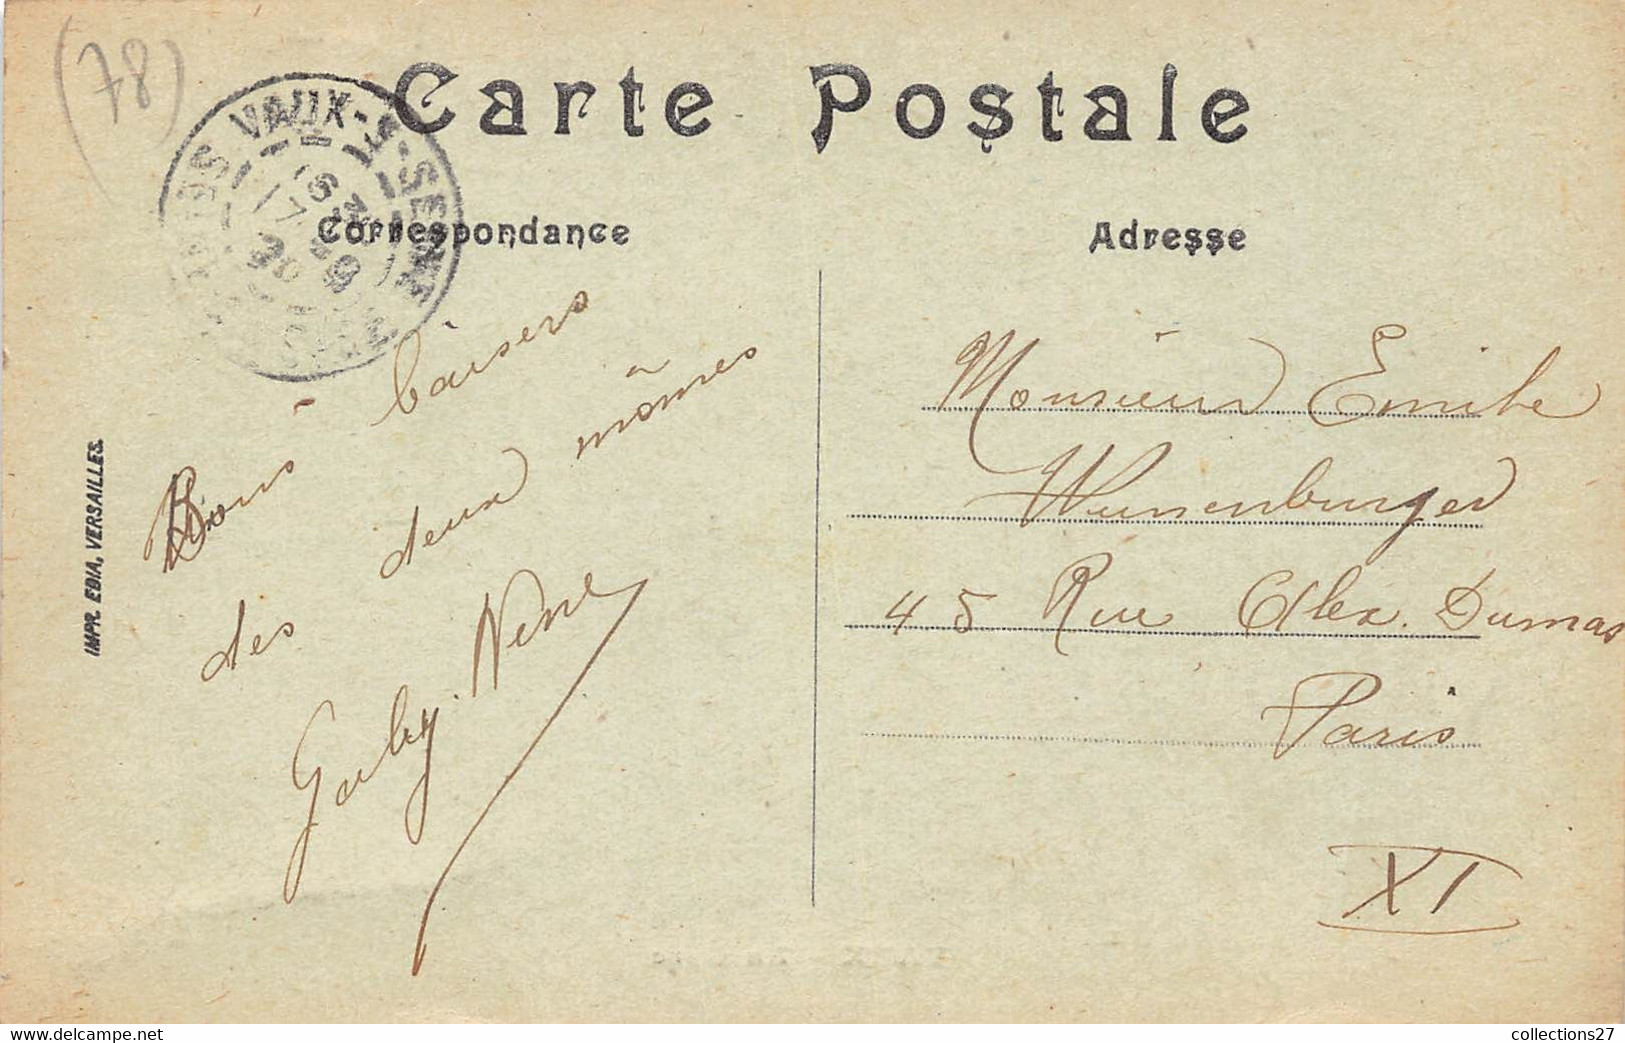 (78)
Carte Postale
VAUX-S-SEINE
Correspondance
Adresse
Bons baisers
des deux mômes
Gaby. Nene
Monsieur Emile
Wunenburger
45 Rue Alex. Dumas
Paris
XI
IMPR. EDIA, VERSAILLES.
collections27